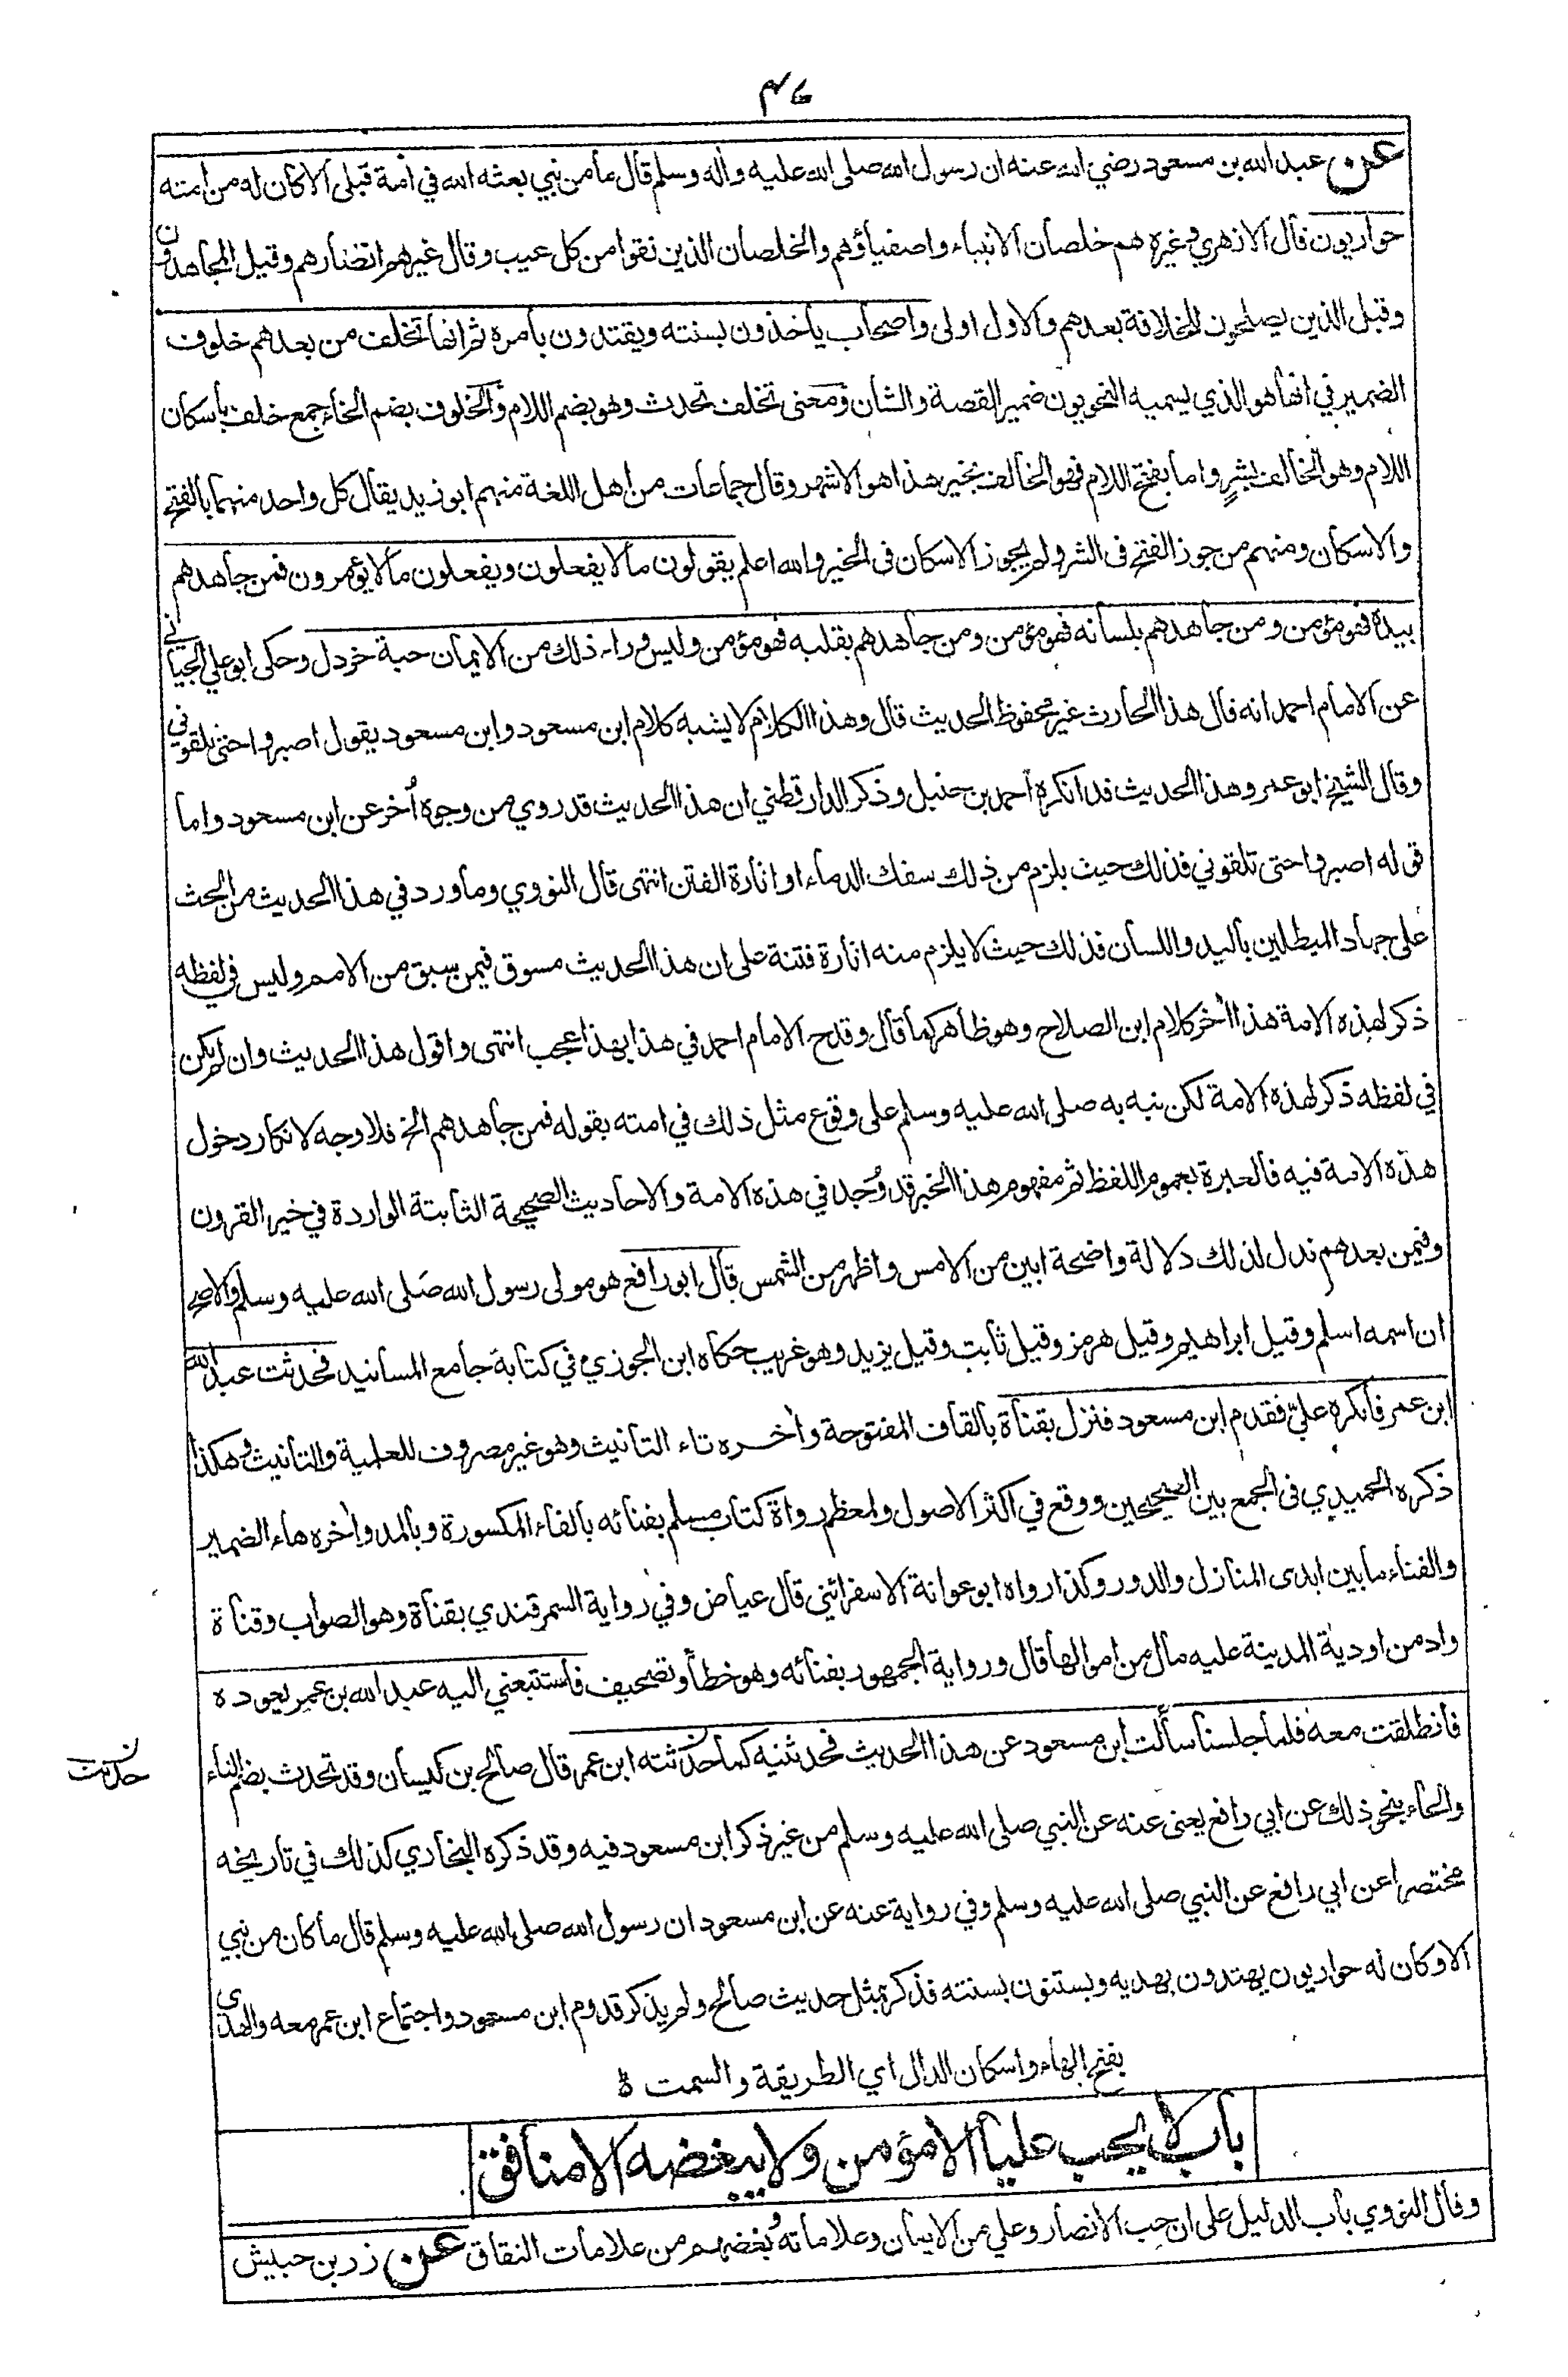 ٤٧
عن عبد الله بن مسعود رضي الله عنه ان رسول الله صلى الله عليه واله وسلم قال ما من نبي بعثه الله في امة قبلى الا كان له من امته
حواريون قال الازهري وغيره هم خلصان الانبياء واصفياؤهم والخلصان الذين نقوا من كل عيب وقال غيرهم انصارهم وقيل المجاهدون
وقيل الذين يصلحون للخلافة بعدهم والاول اولى واصحاب ياخذون بسنته ويقتدون بامره ثم انها تخلف من بعدهم خلوف
الضمير في انها هو الذي يسميه النحويون ضمير القصة والشان ومعنى تخلف تحدث وهو بضم اللام والخلوف بضم الخاء جمع خلف باسكان
اللام وهو الخالف بشرٍ واما بفتح اللام فهو الخالف بخير هذا هو الاشهر وقال جماعات من اهل اللغة منهم ابو زيد يقال كل واحد منهما بالفتح
والاسكان ومنهم من جوز الفتح في الشر ولم يجوز الاسكان فى الخير والله اعلم يقولون ما لا يفعلون ويفعلون ما لا يؤمرون فمن جاهدهم
بيده فهو مؤمن ومن جاهدهم بلسانه فهو مؤمن ومن جاهدهم بقلبه فهو مؤمن وليس وراء ذلك من الايمان حبة خردل وحكى ابو علي الجياني
عن الامام احمد انه قال هذا الحارث غير محفوظ الحديث قال وهذا الكلام لا يشبه كلام ابن مسعود وابن مسعود يقول اصبروا حتى تلقوني
وقال الشيخ ابو عمرو هذا الحديث قد انكره احمد بن حنبل وذكر الدارقطني ان هذا الحديث قد روي من وجوه أخر عن ابن مسعود واما
قوله اصبروا حتى تلقوني فذلك حيث يلزم من ذلك سفك الدماء او اثارة الفتن انتهى قال النووي وما ورد في هذا الحديث من الحث
على جهاد المبطلين باليد واللسان فذلك حيث لا يلزم منه اثارة فتنة على ان هذا الحديث مسوق فيمن سبق من الامم وليس في لفظه
ذكر لهذه الامة هذا اخر كلام ابن الصلاح وهو ظاهر كما قال وقدح الامام احمد في هذا بهذا عجب انتهى واقول هذا الحديث وان لم يكن
في لفظه ذكر لهذه الامة لكن نبه به صلى الله عليه وسلم على وقوع مثل ذلك في امته بقوله فمن جاهدهم الخ فلا وجه لانكار دخول
هذه الامة فيه فالعبرة بعموم اللفظ ثم مفهوم هذا الخبر قد وُجد في هذه الامة والاحاديث الصحيحة الثابتة الواردة في خير القرون
وفيمن بعدهم تدل لذلك دلالة واضحة ابين من الامس واظهر من الشمس قال ابو رافع هو مولى رسول الله صلى الله عليه وسلم والاصح
ان اسمه اسلم وقيل ابراهيم وقيل هرمز وقيل ثابت وقيل يزيد وهو غريب حكاه ابن الجوزي في كتابه جامع المسانيد فحدثت عبد الله
ابن عمر فانكره علي فقدم ابن مسعود فنزل بقناة بالقاف المفتوحة واخره تاء التانيث وهو غير مصروف للعلمية والتانيث وهكذا
ذكره الحميدي فى الجمع بين الصحيحين ووقع في اكثر الاصول ولمعظم رواة كتاب مسلم بفنائه بالفاء المكسورة وبالمد واخره هاء الضمير
والفناء ما بين ايدى المنازل والدور وكذا رواه ابو عوانة الاسفرائني قال عياض وفي رواية السمرقندي بقناة وهو الصواب وقناة
واد من اودية المدينة عليه مال من اموالها قال ورواية الجمهور بفنائه وهو خطأ وتصحيف فاستتبعني اليه عبد الله بن عمر يعوده
فانطلقت معه فلما جلسنا سألت ابن مسعود عن هذا الحديث فحدثنيه كما حدثته ابن عمر قال صالح بن كيسان وقد تحدث بضم التاء
حدثت
والحاء بنحو ذلك عن ابي رافع يعنى عنه عن النبي صلى الله عليه وسلم من غير ذكر ابن مسعود فيه وقد ذكره البخاري كذلك في تاريخه
مختصرا عن ابي رافع عن النبي صلى الله عليه وسلم وفي رواية عنه عن ابن مسعود ان رسول الله صلى الله عليه وسلم قال ما كان من نبي
الا وكان له حواريون يهتدون بهديه ويستنون بسنته فذكر بمثل حديث صالح ولم يذكر قدوم ابن مسعود واجتماع ابن عمر معه والهدي
بفتح الهاء واسكان الدال اي الطريقة والسمت ہ
باب لا يحب عليا الا مؤمن ولا يبغضه الا منافق
وقال النووي باب الدليل على ان حب الانصار وعلي من الايمان وعلاماته وبُغضهم من علامات النفاق عن زر بن حبيش